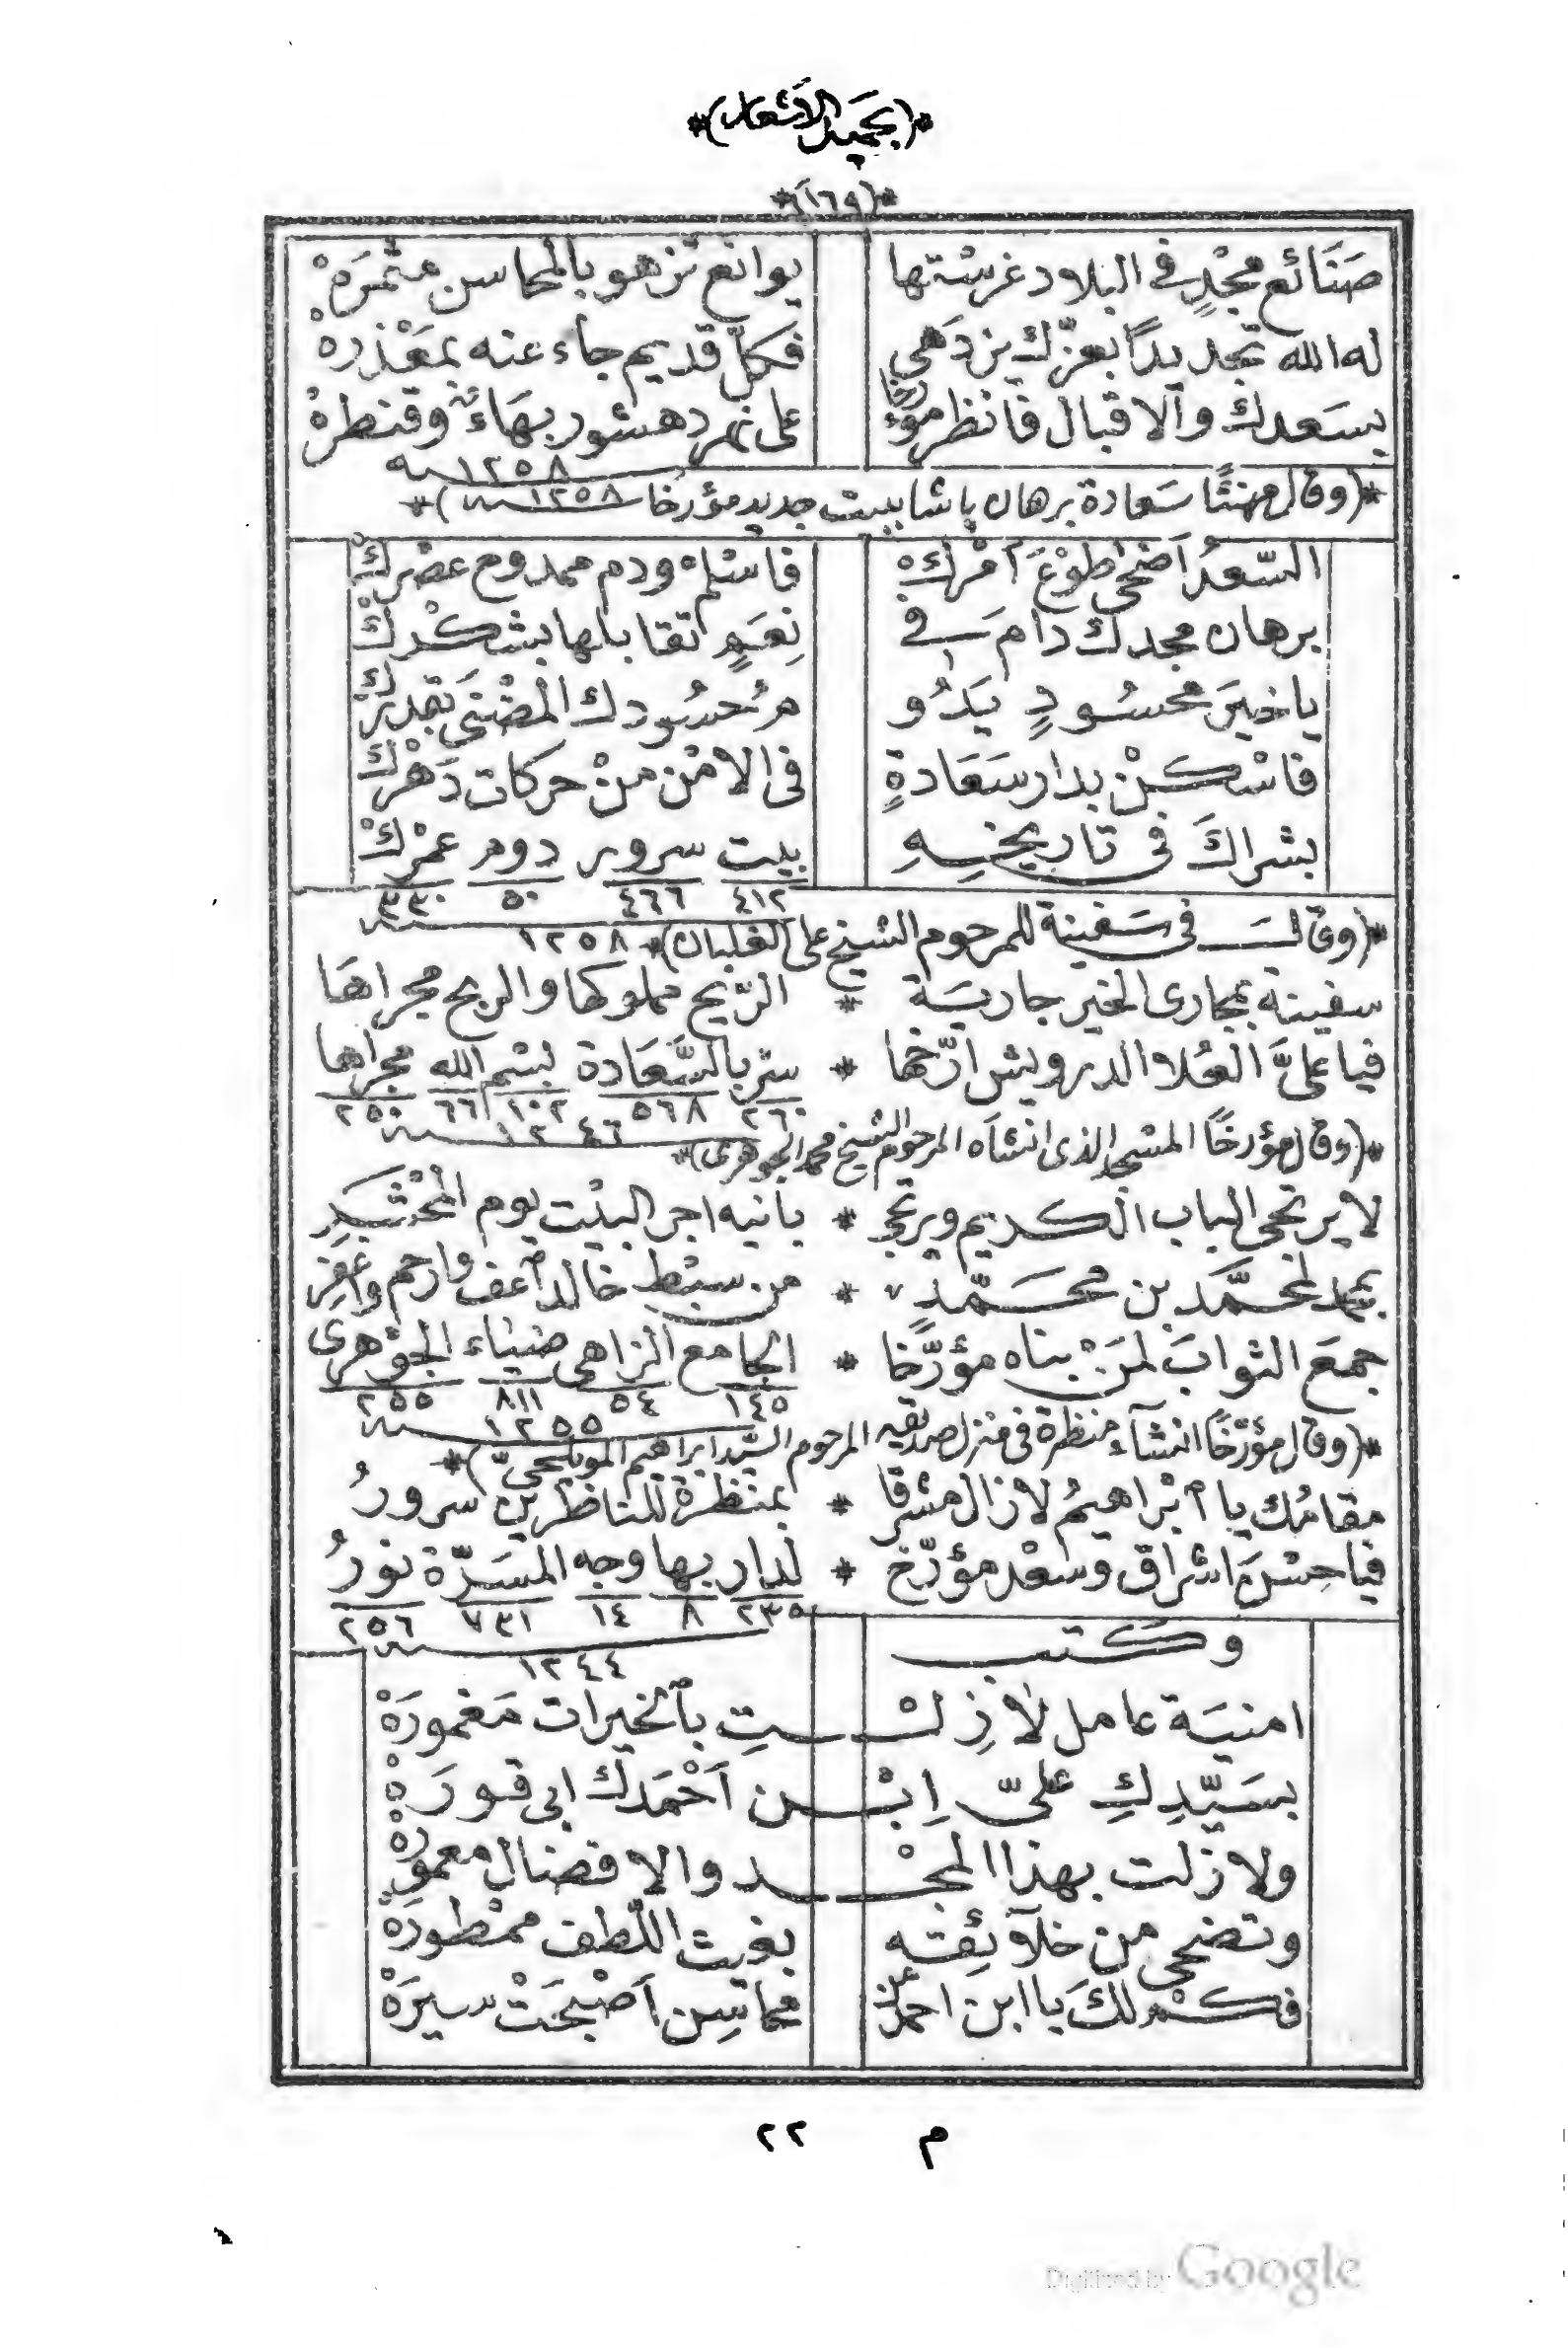 *(بجميل الأشعار)*
*(١٦٩)*
صَنَائع مجْدٍ في البلاد غرستها يوانع تزهو بالمحاسن مثمرَهْ
له الله تجديدًا بعزّك يزدَهى فكلّ قديم جاء عنه بمَعْذرهْ
بسَعدك والاقبال فانظر مؤرخا على نهر دهشور بهَاءٌ وقنطرهْ
١٢٥٨ سنة
*(وقال مهنئًا سَعادة برهان باشا ببيت جديد مؤرخا ١٢٥٨ سنة)*
السّعدُ اَضحى طوْعَ اَمْركْ فاسْلم ودم ممدوح عصْركْ
برهان مجدك دامَ في نِعَمٍ اتقابلها بشكْركْ
يا خيرَ محسُودٍ يَدُو مُ حسُودك المضْنَى بقدركْ
فاسْكنْ بدار سَعَادةٍ فى الامْن منْ حركات دَهْركْ
بشراكَ فى تاريخِهِ بيت سرور دوم عمْركْ
٤١٢ ٤٦٦ ٥٠ ٣٣٠
*(وقالَ فى سَفينة للمرحوم الشيخ على الغلبان)* ١٢٥٨
سفينة بمجارى الخير جاريَة * الرّيح مملوكها والربح مجراهَا
فيا علىَّ العُلا الدرويش ارّخها * سرْ بالسَّعَادة بسْم الله مجراها
٢٦٠ ٥٦٨ ١٠٢ ٦٦ ٢٥٠
١٢٤٦ سنة
*(وقال مؤرخًا المسْجد الذى انشأه المرحوم الشيخ محمد الجوهرى)*
لا يرتجى الباب الكريم ويرتجى * بانيه اجر البيْت يوم المحْشَرِ
بمحمّد بن محَمَّدٍ * من سبْط خالد اَعف وارحم واغفِرِ
جمعَ الثوابَ لمَنْ بناه مؤرّخا * الجامع الزاهى ضيَاء الجوْهرى
١٤٥ ٥٤ ٨١١ ٢٥٥
١٢٥٥ سنة
*(وقال مؤرّخًا انشآء منظرة فى منزل صديقه المرحوم السّيد ابراهيم المويلحىّ)*
مقامُك يا اِبْراهيمُ لازال مشرقا * بمنْظرَة للناظرين سرورُ
فيا حسْنَ اشراق وسعْد مؤرّخ * لدار بها وجه المسَرّة نورُ
٢٣٥ ٨ ١٤ ٧٣١ ٢٥٦
١٢٤٤ سنة
وكتب
امنيَة عامل لازِلتِ بالخيرات مَغمورَهْ
بسَيّدِكِ علىّ اِبْن اَحْمَدك ابى قورَهْ
ولا زلت بهذا المجْد والافضال معمورهْ
وتضحى من خلآئقه بغيث اللّطف ممْطورهْ
فكمْ لكَ يا ابن احمد عن محاسِن اَصْبحَتْ سيرَهْ
م ٢٢
Digitized by Google